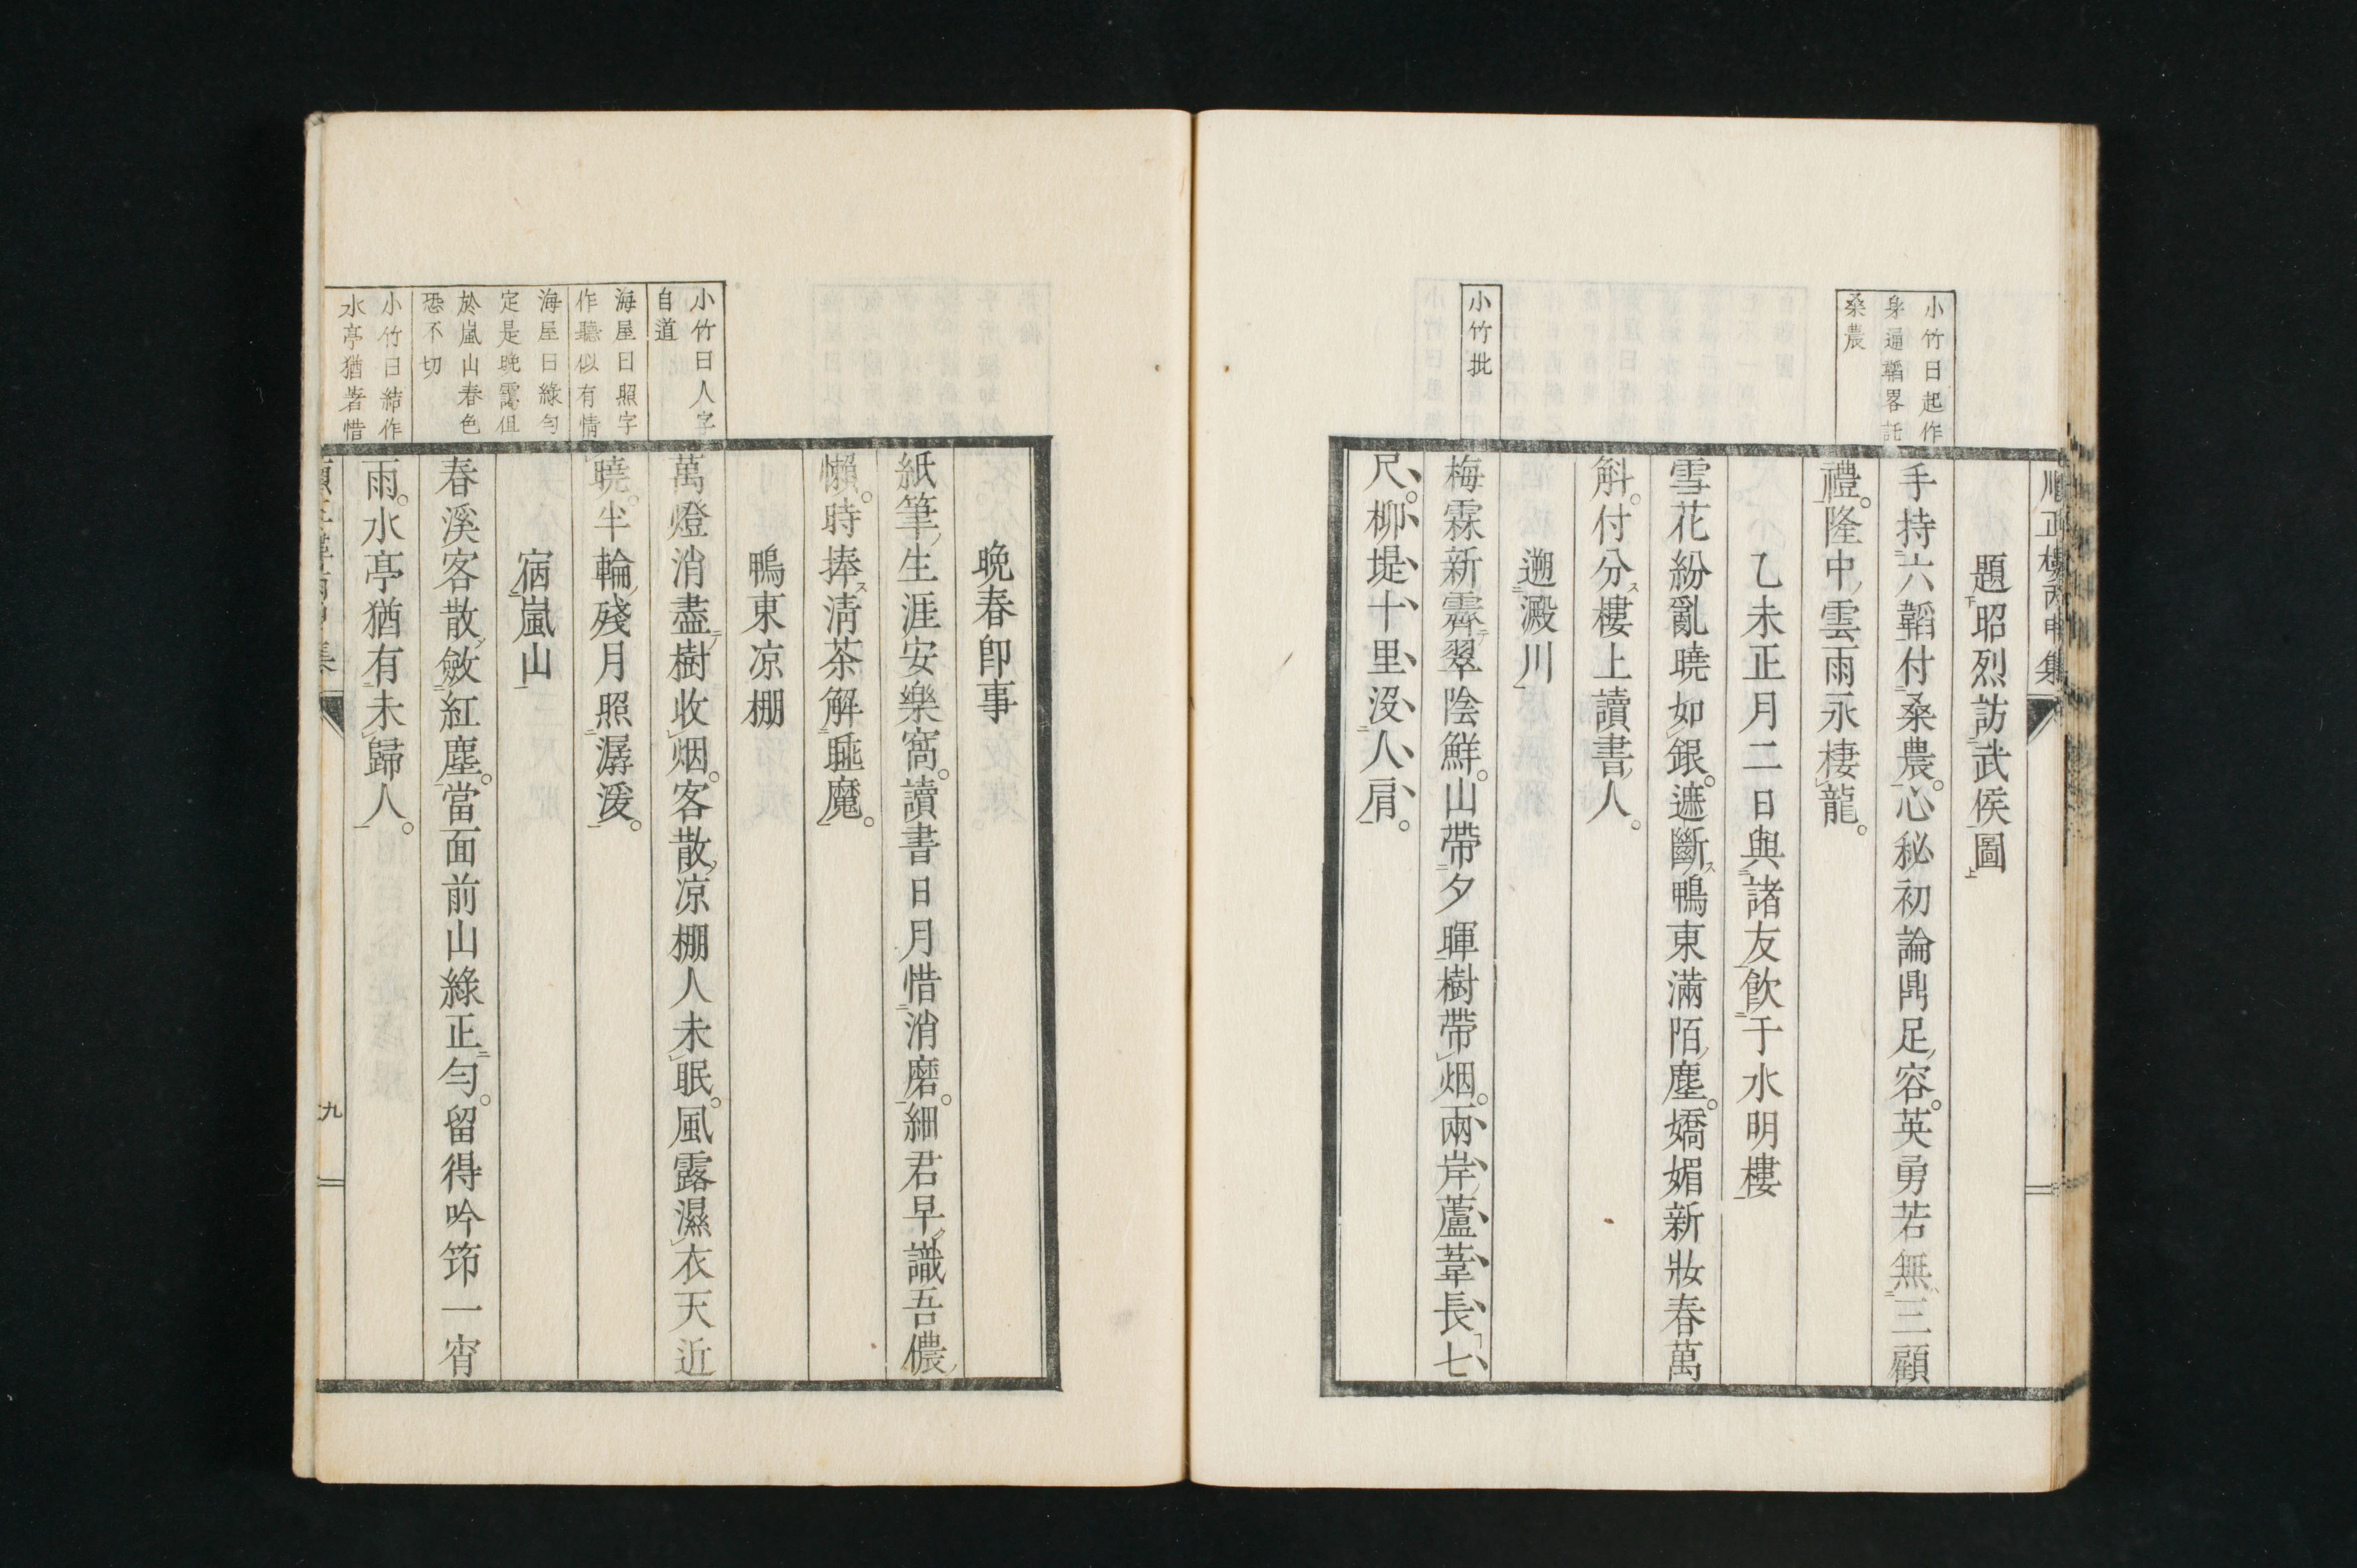 順正樓丙申集
小竹曰起作
身逼韜畧託
桑農
題昭烈訪武侯圖
手持六韜付桑農。心秘初論鼎足容。英勇若無三顧
禮。隆中雲雨永棲龍。
乙未正月二日與諸友飲于水明樓
雪花紛亂曉如銀。遮斷鴨東滿陌塵。嬌媚新妝春萬
斛。付分樓上讀書人。
遡澱川
小竹批
梅霖新霽翠陰鮮。山帶夕暉樹帶烟。兩岸蘆葦長七
尺。柳堤十里沒人肩。
晩春卽事
紙筆生涯安樂窩。讀書日月惜消磨。細君早識吾儂
懶。時捧淸茶解睡魔。
鴨東凉棚
小竹曰人字
自道
萬燈消盡樹收烟。客散凉棚人未眠。風露濕衣天近
海屋曰照字
作聽似有情
曉。半輪殘月照潺湲。
宿嵐山
海屋曰綠勻
定是晩霽但
於嵐山春色
恐不切
春溪客散斂紅塵。當面前山綠正勻。留得吟笻一宵
小竹曰結作
水亭猶著惜
雨。水亭猶有未歸人。
九